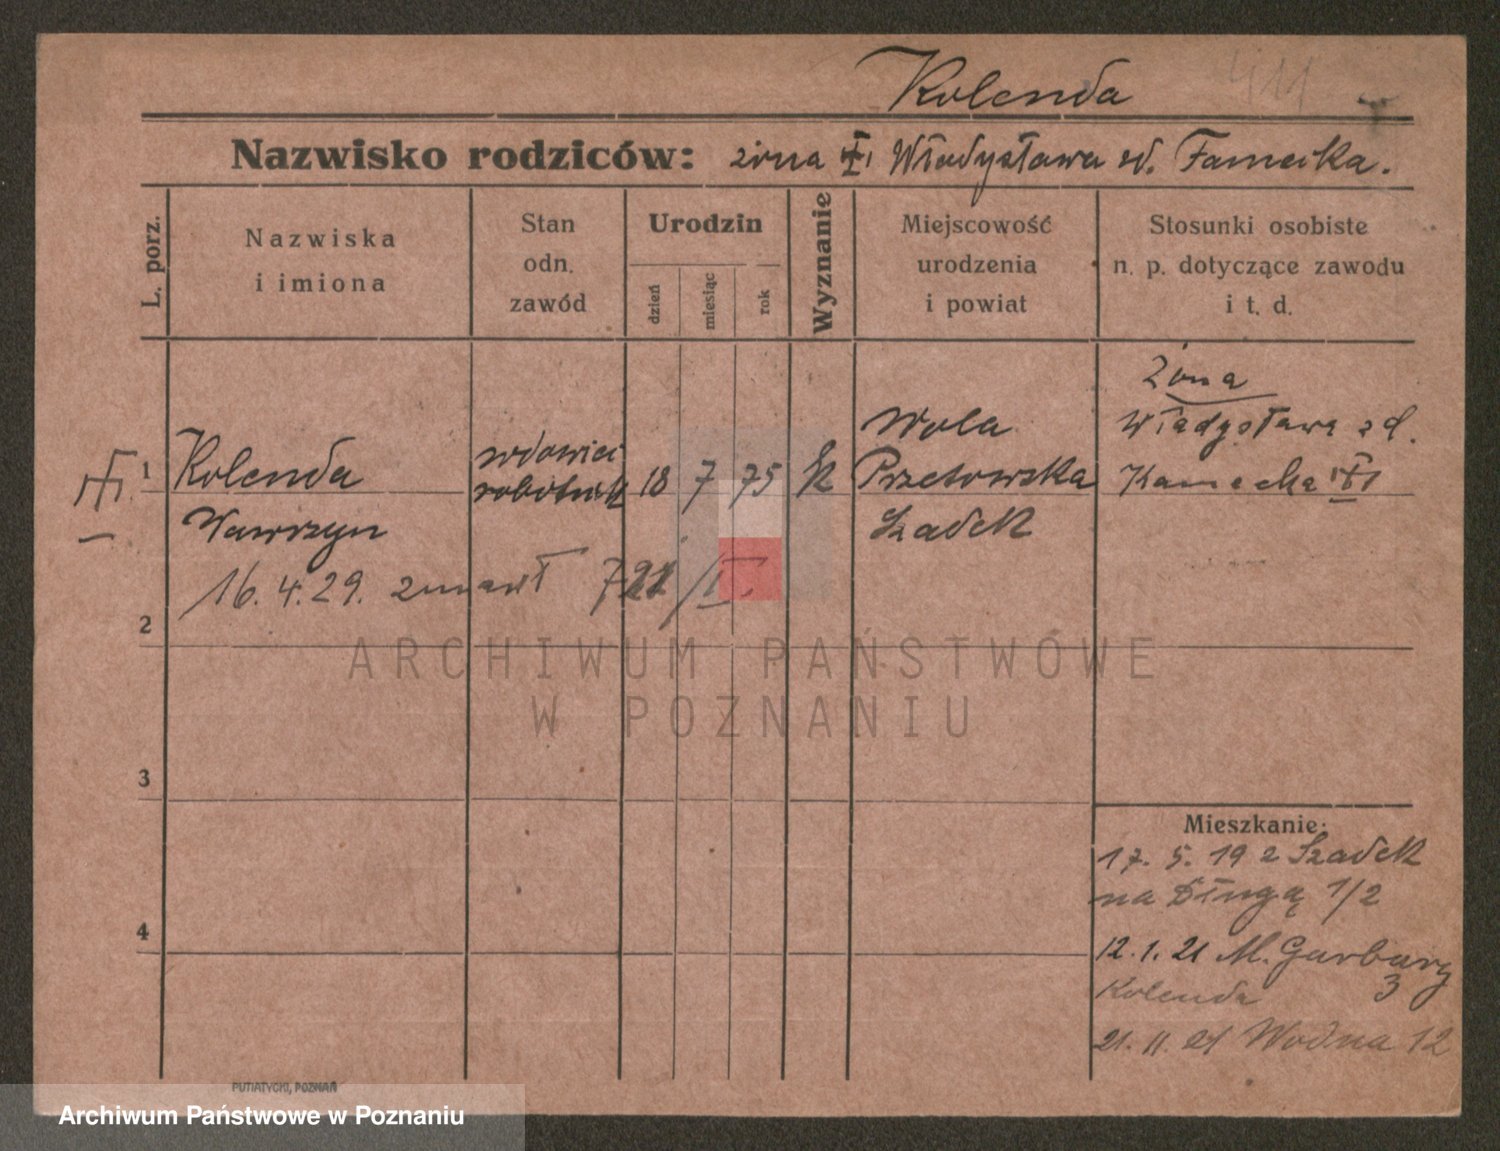 Kolenda 411
Nazwisko rodziców: żona Władysława zd. Famecka.
L. porz.
Nazwiska
i imiona
Stan
odn.
zawód
Urodzin
dzień
miesiąc
rok
Wyznanie
Miejscowość
urodzenia
i powiat
Stosunki osobiste
n. p. dotyczące zawodu
i t. d.
1
Kolenda
Wawrzyn
wdowiec
robotnik
18 7 75
k
Wola
Przetowska
Szadek
Żona
Władysława zd.
Kamecka
16. 4. 29. zmarł
2
3
4
Mieszkanie:
17. 5. 19 z Szadek
na Długą 1/2
12. 1. 21 M. Garbary
3
Kolenda
21. 11. 21 Wodna 12
ARCHIWUM PAŃSTWOWE
W POZNANIU
PUTIATYCKI, POZNAŃ
Archiwum Państwowe w Poznaniu